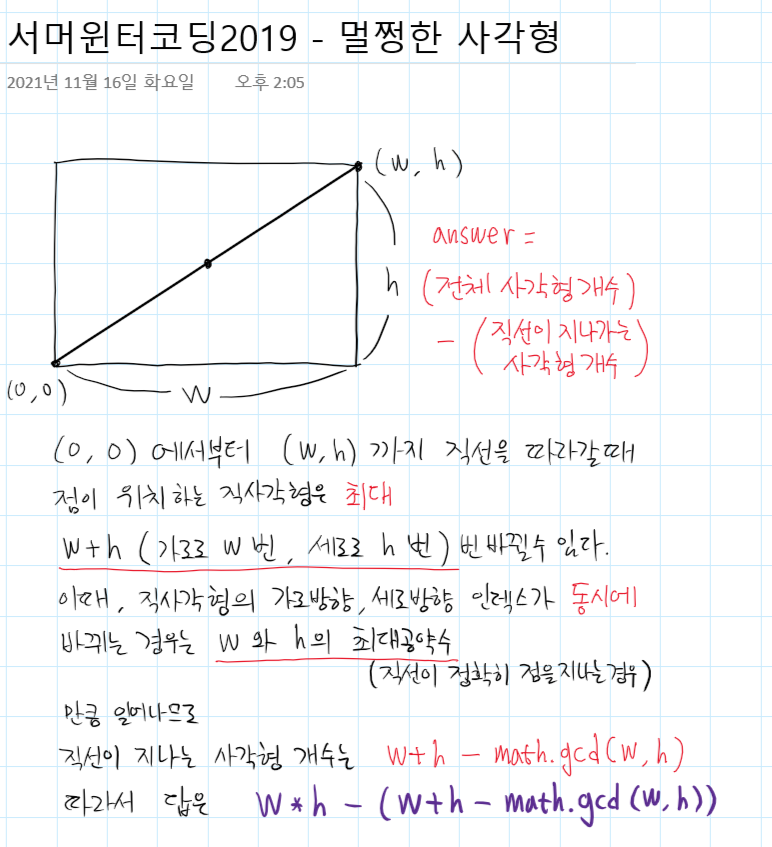 서머윈터코딩2019 - 멀쩡한 사각형
2021년 11월 16일 화요일 오후 2:05
(w, h)
answer =
h
(전체 사각형 개수)
- (직선이 지나가는
사각형 개수)
(0,0)
w
(0, 0) 에서부터 (w,h) 까지 직선을 따라갈때
점이 위치하는 직사각형은 최대
w+h (가로로 w번, 세로로 h번) 번 바뀔수 있다.
이때, 직사각형의 가로방향, 세로방향 인덱스가 동시에
바뀌는 경우는 w 와 h의 최대공약수
(직선이 정확히 점을 지나는 경우)
만큼 일어나므로
직선이 지나는 사각형 개수는 w+h - math.gcd(w,h)
따라서 답은 w*h - (w+h - math.gcd(w,h))